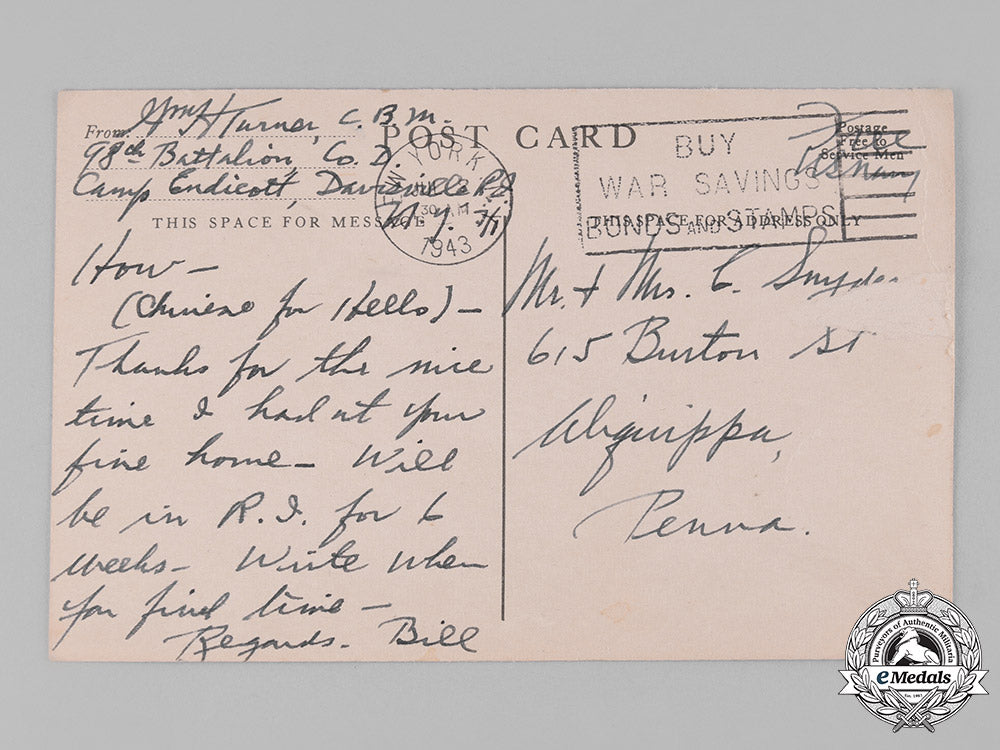 From: Wm H Turner, C.B.M.
98th Battalion, Co. D.
Camp Endicott, Davisville R.I.
POST CARD
NEW YORK
30 AM
1943
N.Y.
BUY
WAR SAVINGS
BONDS AND STAMPS
Free
Postage
Free to
Service Men
THIS SPACE FOR MESSAGE
THIS SPACE FOR ADDRESS ONLY
How –
(Chinese for Hello) –
Thanks for the nice
time I had at your
fine home – Will
be in R.I. for 6
weeks – Write when
you find time –
Regards. Bill
Mr. + Mrs. C. Snyder
615 Burton St
Aliquippa,
Penna.
Purveyors of Authentic Militaria
eMedals